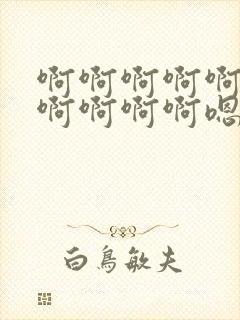 啊啊啊啊啊
啊啊啊啊嗯
白鳥敏夫